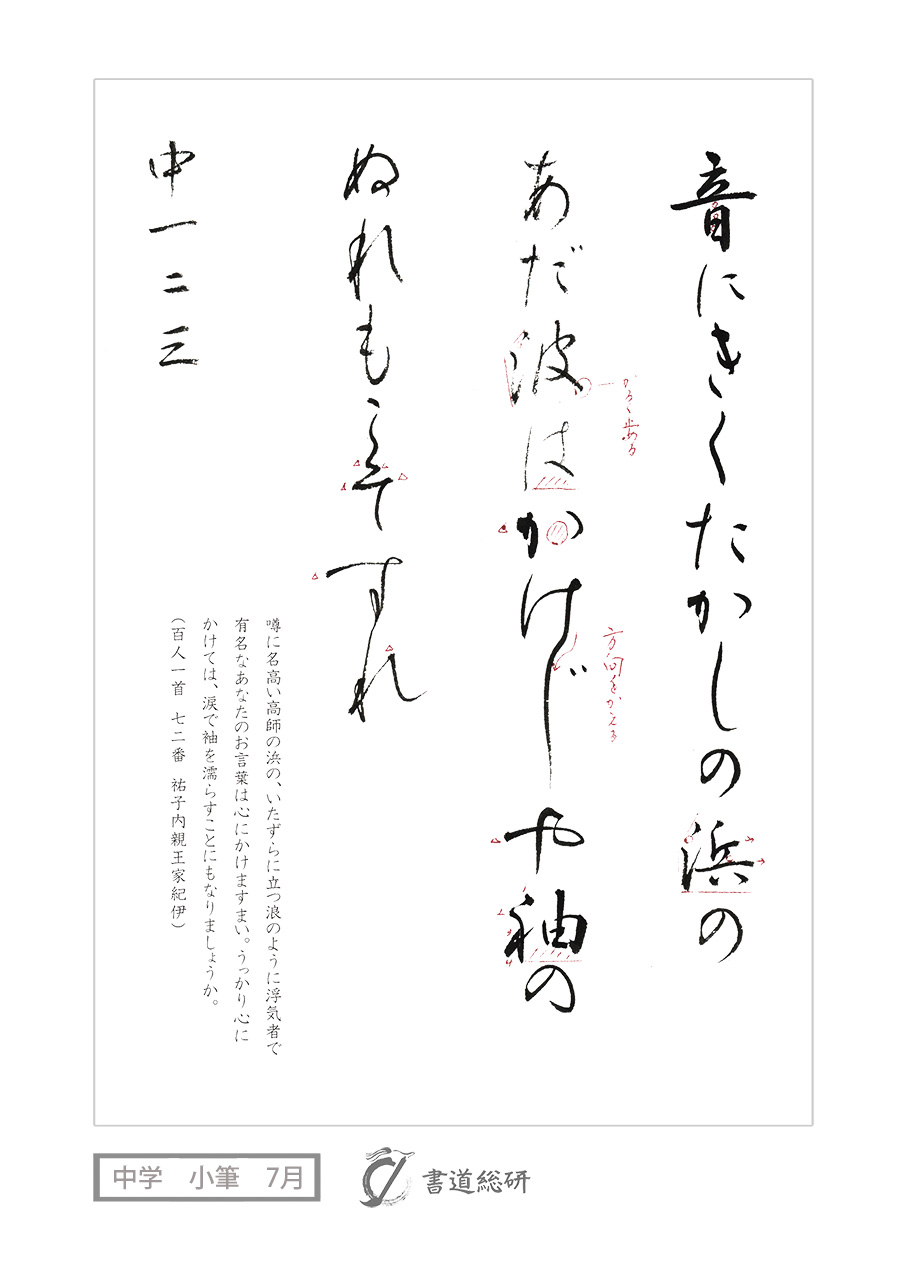 音にきくたかしの浜の
あだ波はかけじや袖の
かるく止める
方向をかえる
ぬれもこそすれ
中一二三
噂に名高い高師の浜の、いたずらに立つ浪のように浮気者で
有名なあなたのお言葉は心にかけますまい。うっかり心に
かけては、涙で袖を濡らすことにもなりましょうか。
(百人一首 七二番 祐子内親王家紀伊)
中学 小筆 7月
書道総研